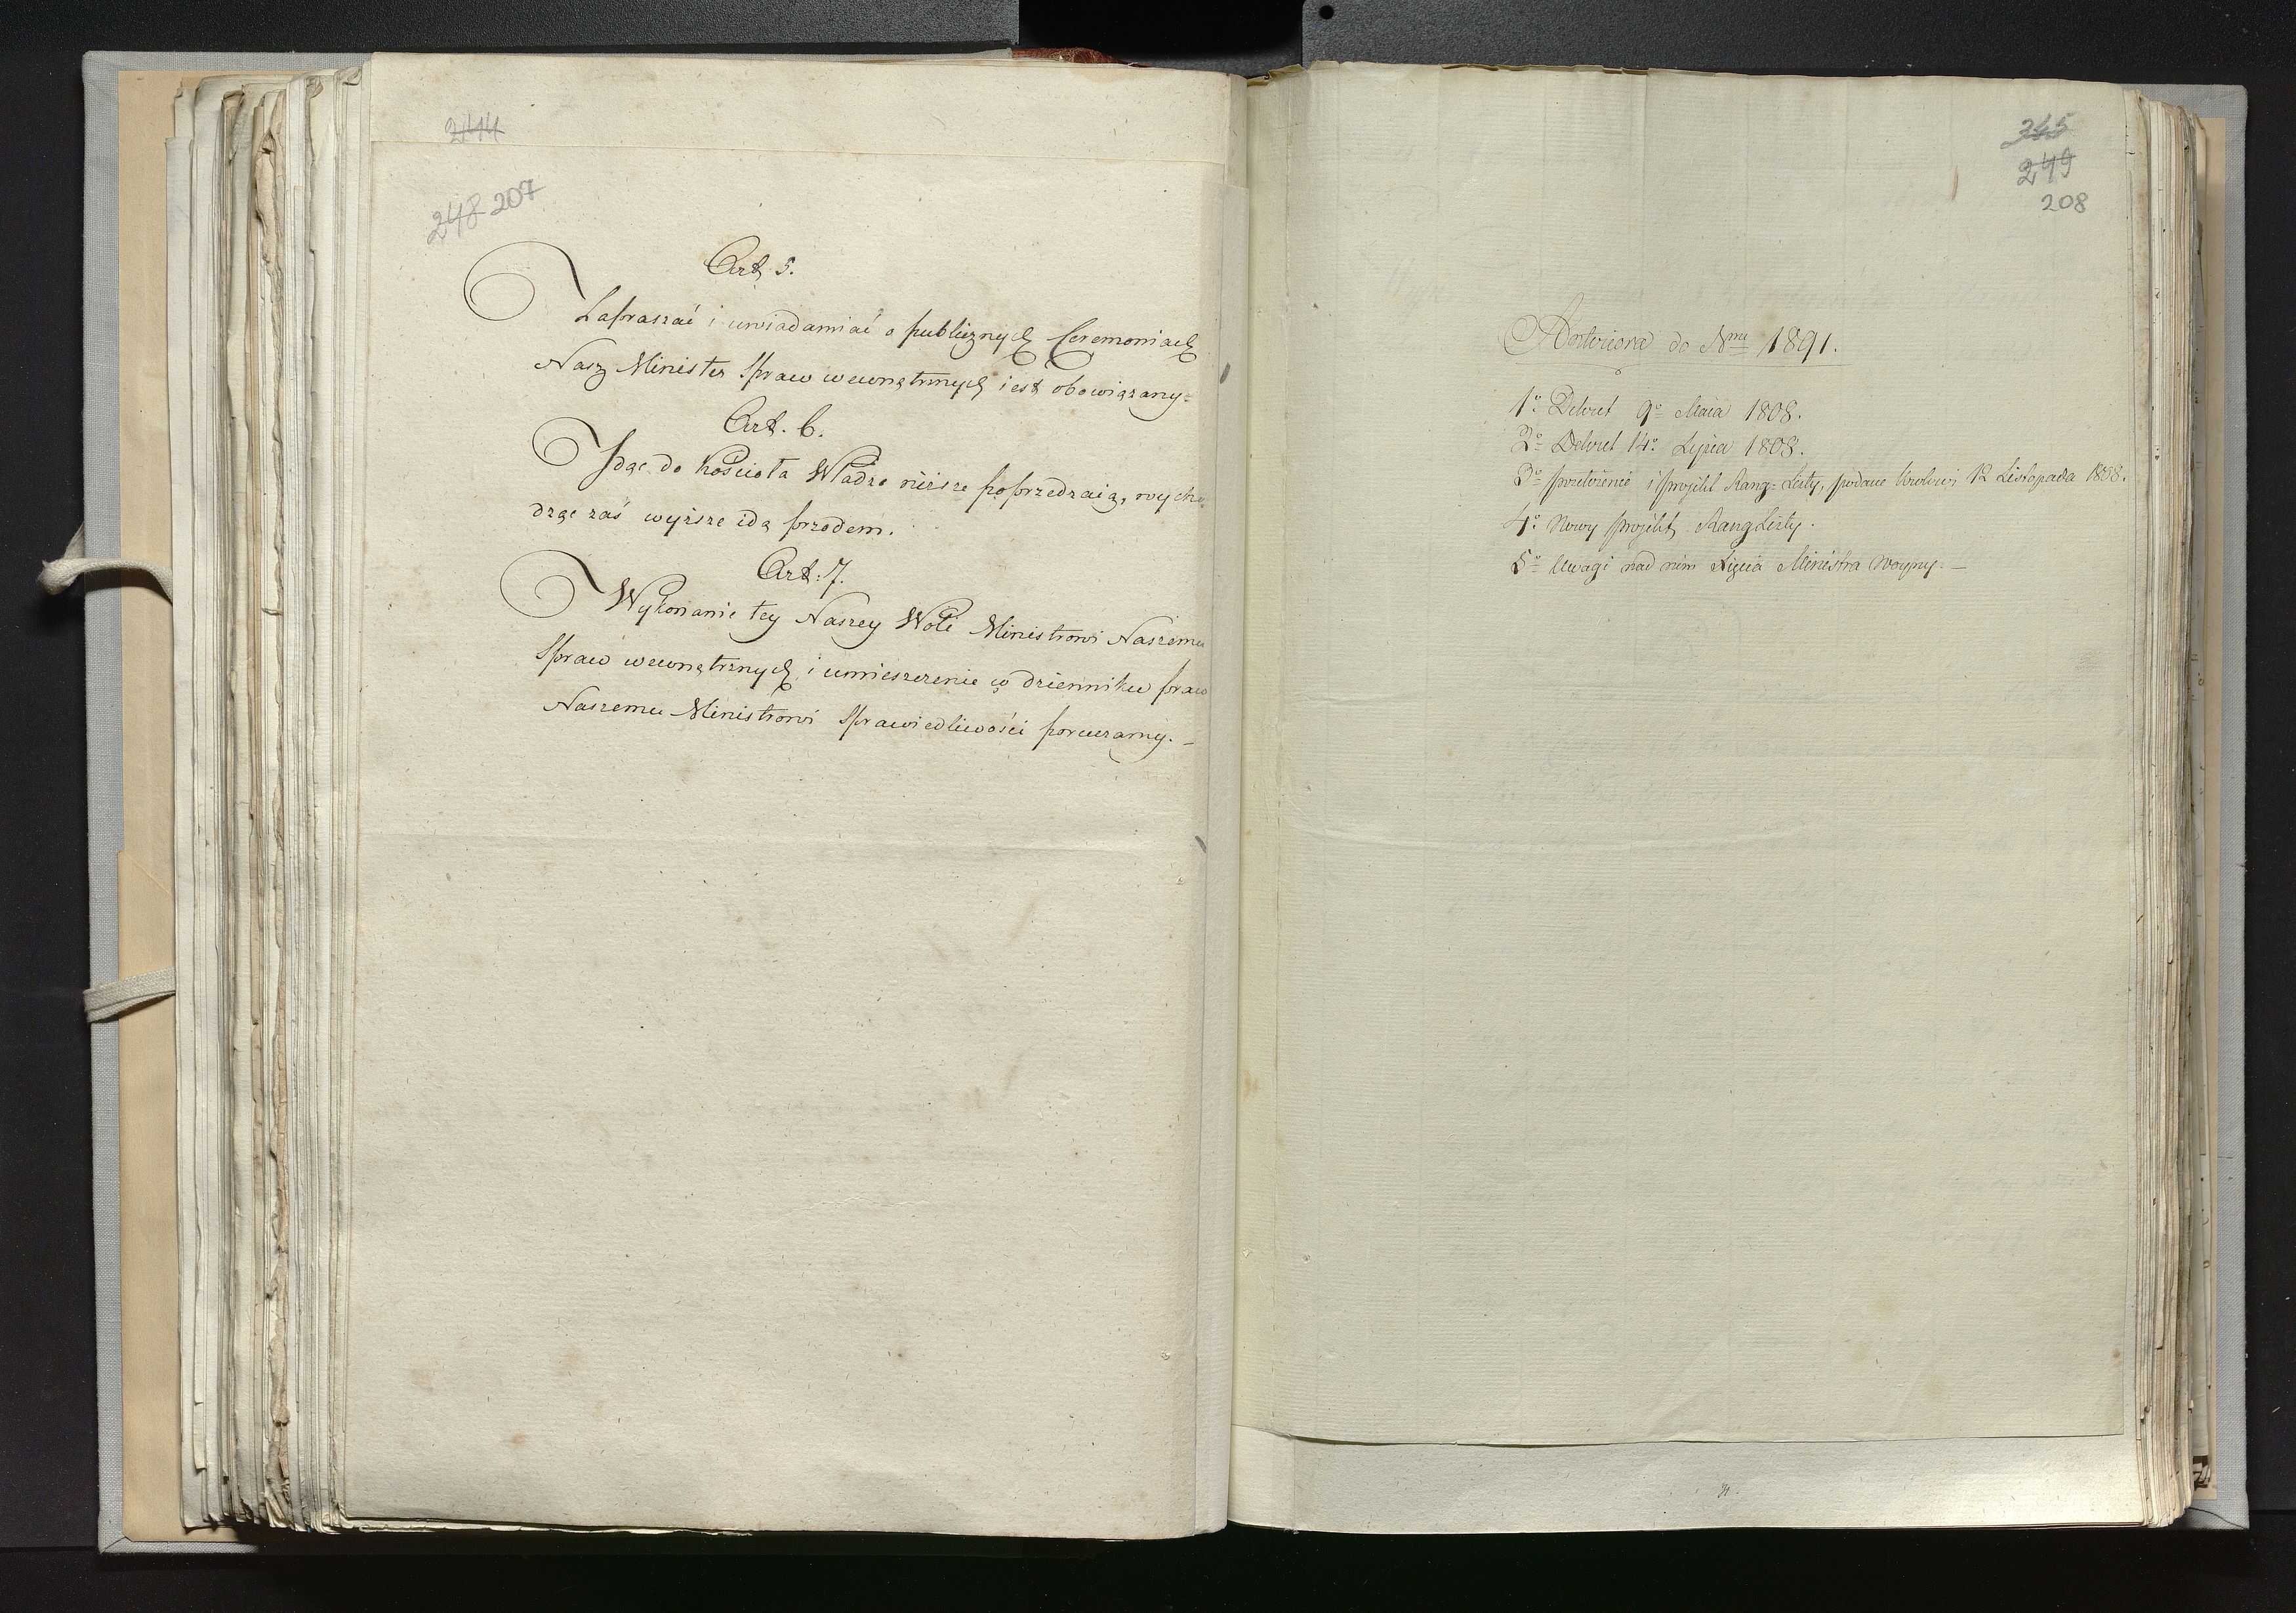 244
248 207
Art 5.
Zapraszać i uwiadamiać o publicznych Ceremoniach
Nasz Minister Spraw wewnętrznych iest obowiązany=
Art. 6.
Idąc do kościoła Władze niższe poprzedzaią, wycho-
dząc zaś wyższe idą przodem.
Art: 7.
Wykonanie tey Naszey Woli Ministrowi Naszemu
Spraw wewnętrznych, i umieszczenie w dzienniku praw
Naszemu Ministrowi Sprawiedliwości poruczamy. –
245
249
208
Anteriora do Nru 1891.
1o Dekret 9o Maia 1808.
2o Dekret 14o Lipca 1808.
3o przełożenie i projekt Rang=Listy, podane Krolowi 12 Listopada 1808.
4o Nowy projekt RangListy.
5o Uwagi nad nim Xięcia Ministra woyny. –